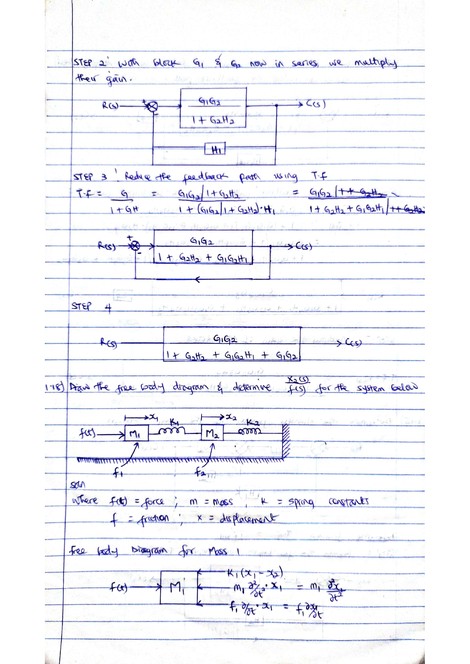 STEP 2: With block G₁ & G₂ now in series we multiply
their gain.
R(s) + - G₁G₂ / 1 + G₂H₂ C(s)
H₁
STEP 3: Reduce the feedback path using T.f
T.f = G / 1 + GH = G₁G₂/1 + G₂H₂ / 1 + (G₁G₂/1 + G₂H₂)·H₁ = G₁G₂/1 + G₂H₂ / 1 + G₂H₂ + G₁G₂H₁/1 + G₂H₂
R(s) + - G₁G₂ / 1 + G₂H₂ + G₁G₂H₁ C(s)
STEP 4
R(s) G₁G₂ / 1 + G₂H₂ + G₁G₂H₁ + G₁G₂ C(s)
178) Draw the free body diagram & determine X₂(s)/f(s) for the system below
x₁ K₁ x₂ K₂
f(t) M₁ M₂
f₁ f₂
soln
where f(t) = force ; m = mass K = spring constants
f = friction ; x = displacement
free body Diagram for Mass 1
K₁(x₁ - x₂)
f(t) M₁ m₁ ∂²/∂t² · x₁ = m₁ ∂²x₁/∂t²
f₁ ∂/∂t · x₁ = f₁ ∂x₁/∂t